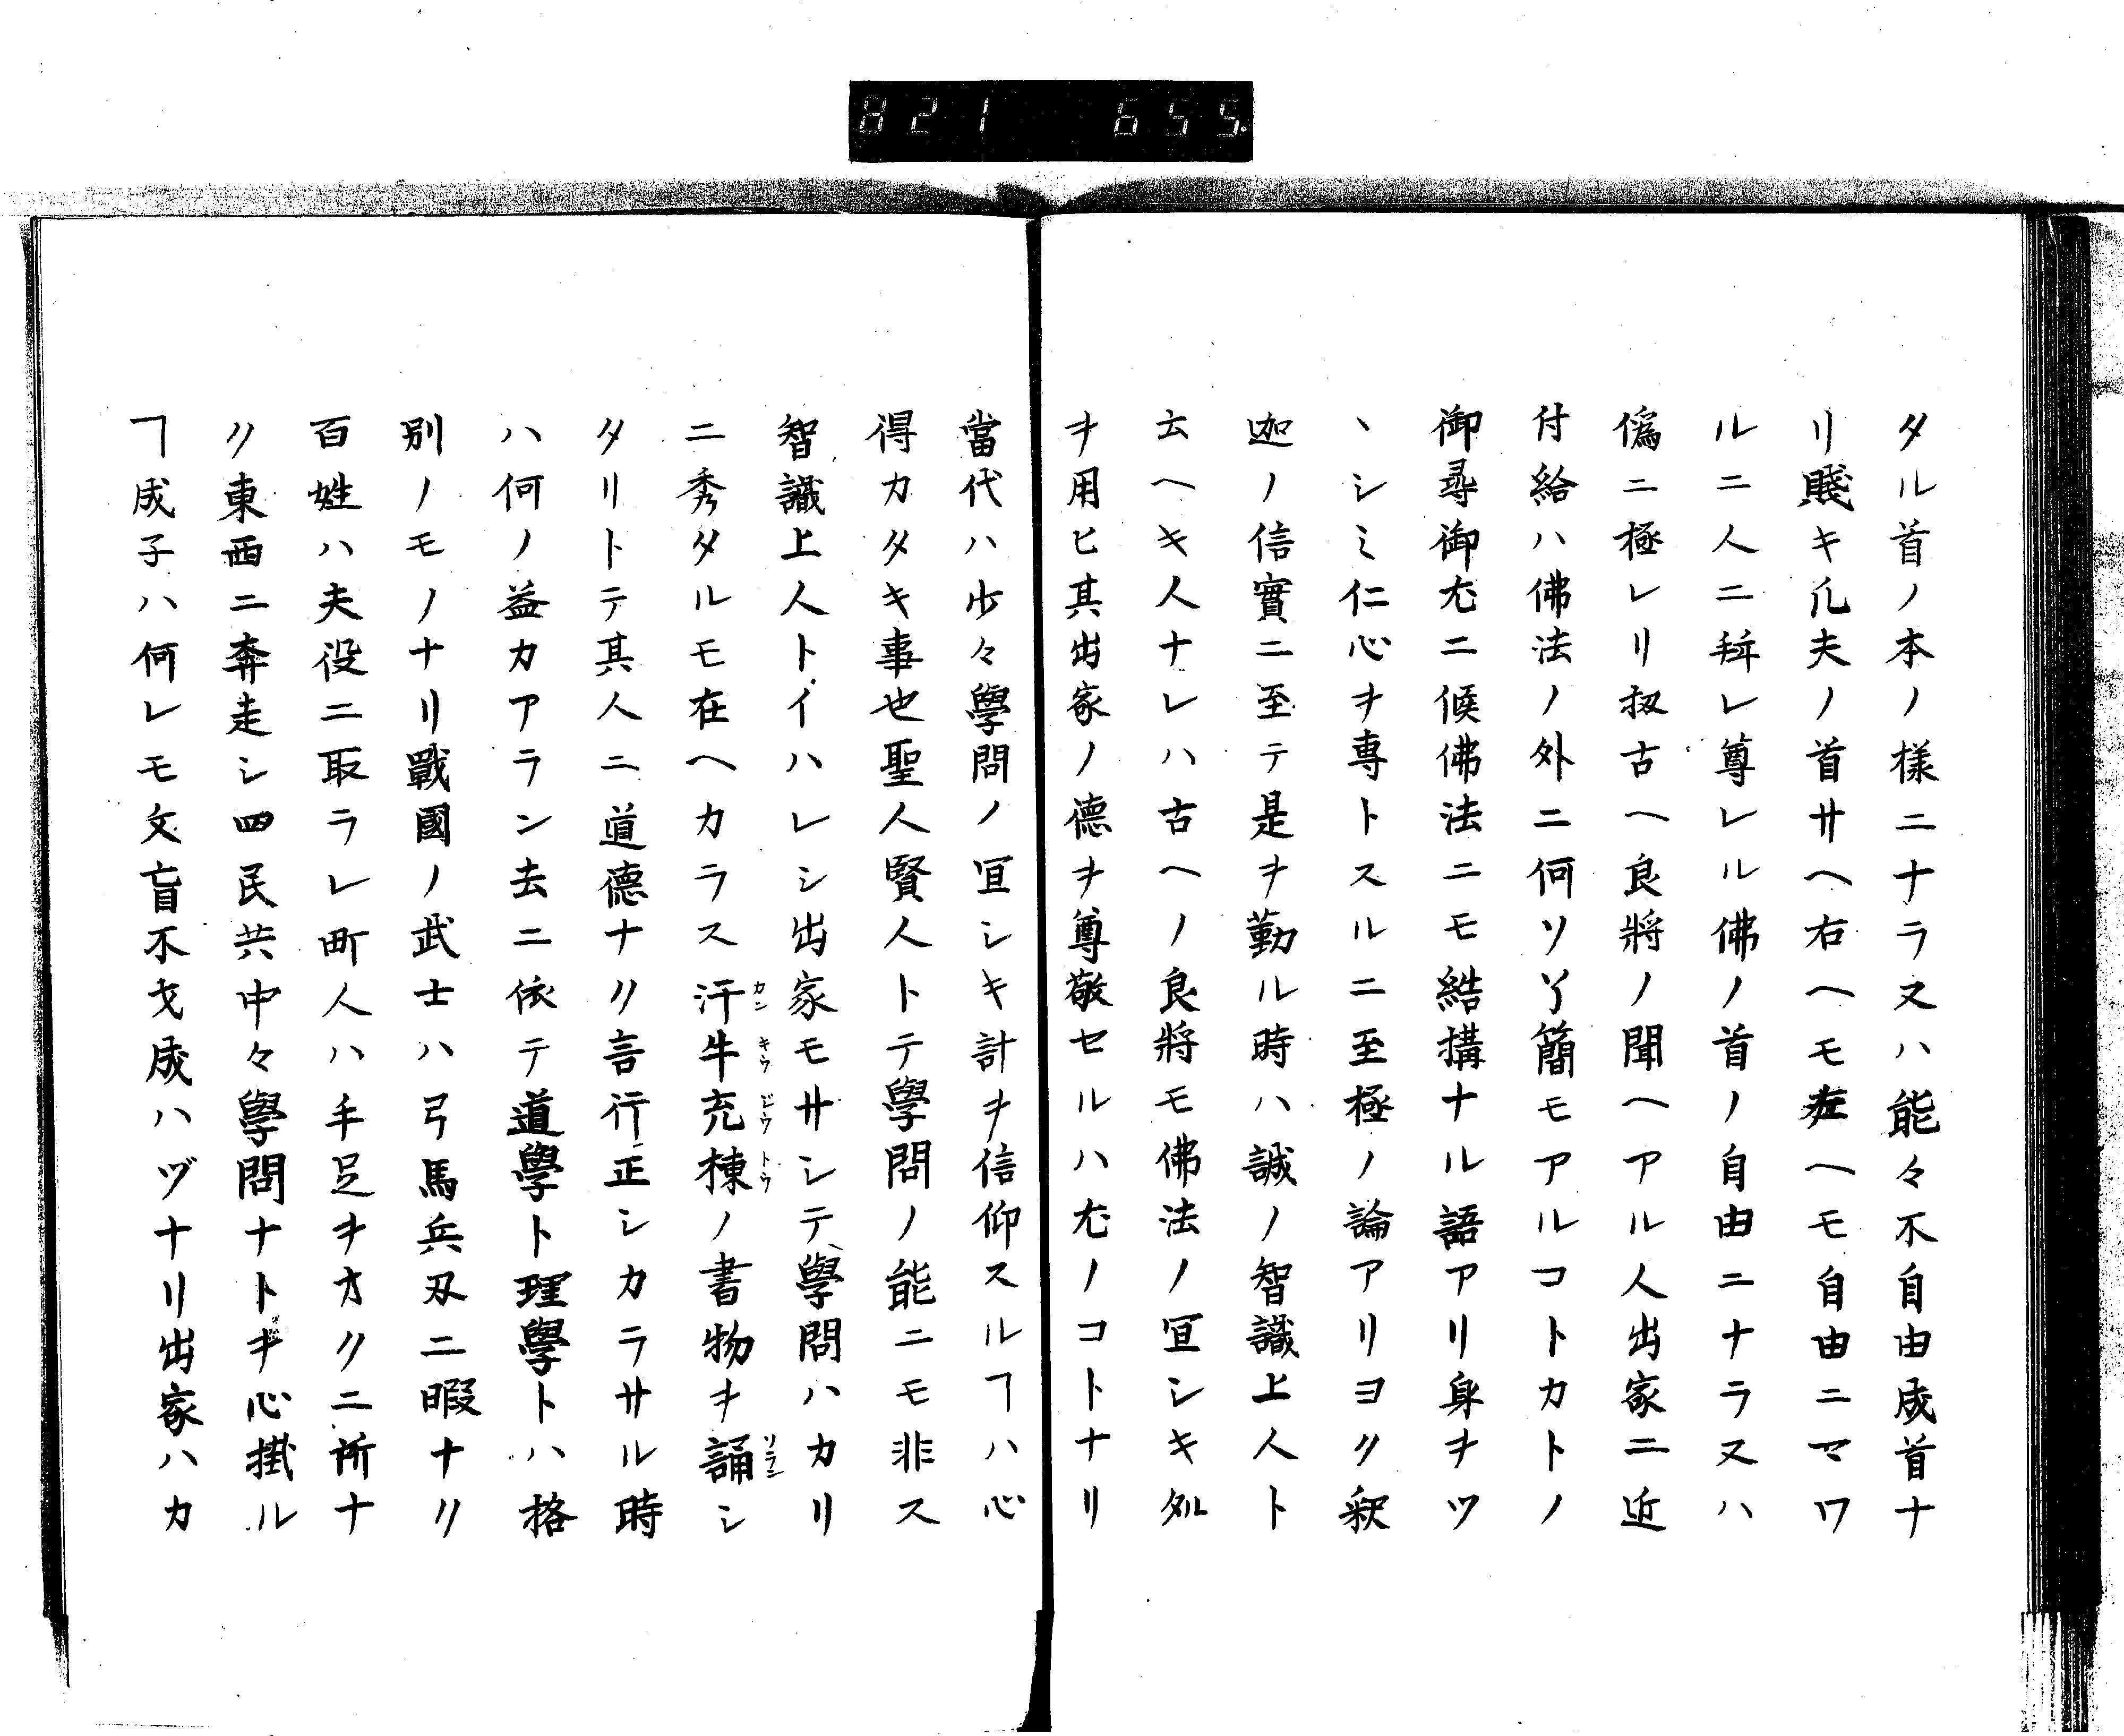 821 655.
タル首ノ本ノ様ニナラヌハ能々不自由成首ナ
リ賤キ凡夫ノ首サヘ右ヘモ左ヘモ自由ニマワ
ルニ人ニ拜レ尊レル佛ノ首ノ自由ニナラヌハ
偽ニ極レリ扨古ヘ良將ノ聞ヘアル人出家ニ近
付給ハ佛法ノ外ニ何ソ了簡モアルコトカトノ
御尋御尤ニ候佛法ニモ結構ナル語アリ身ヲツ
ヽシミ仁心ヲ専トスルニ至極ノ論アリヨク釈
迦ノ信實ニ至テ是ヲ勤ル時ハ誠ノ智識上人ト
云ヘキ人ナレハ古ヘノ良將モ佛法ノ冝シキ処
ヲ用ヒ其出家ノ德ヲ尊敬セルハ尤ノコトナリ
當代ハ少々學問ノ冝シキ計ヲ信仰スルヿハ心
得カタキ事也聖人賢人トテ學問ノ能ニモ非ス
智識上人トイハレシ出家モサシテ學問ハカリ
ニ秀タルモ在ヘカラス汗牛充棟ノ書物ヲ誦シ
タリトテ其人ニ道德ナク言行正シカラサル時
ハ何ノ益カアラン去ニ依テ道學ト理學トハ格
別ノモノナリ戰國ノ武士ハ弓馬兵刃ニ暇ナク
百姓ハ夫役ニ取ラレ町人ハ手足ヲオクニ所ナ
ク東西ニ奔走シ四民共中々學問ナトヲ心掛ル
ヿ成子ハ何レモ文盲不才成ハヅナリ出家ハカ